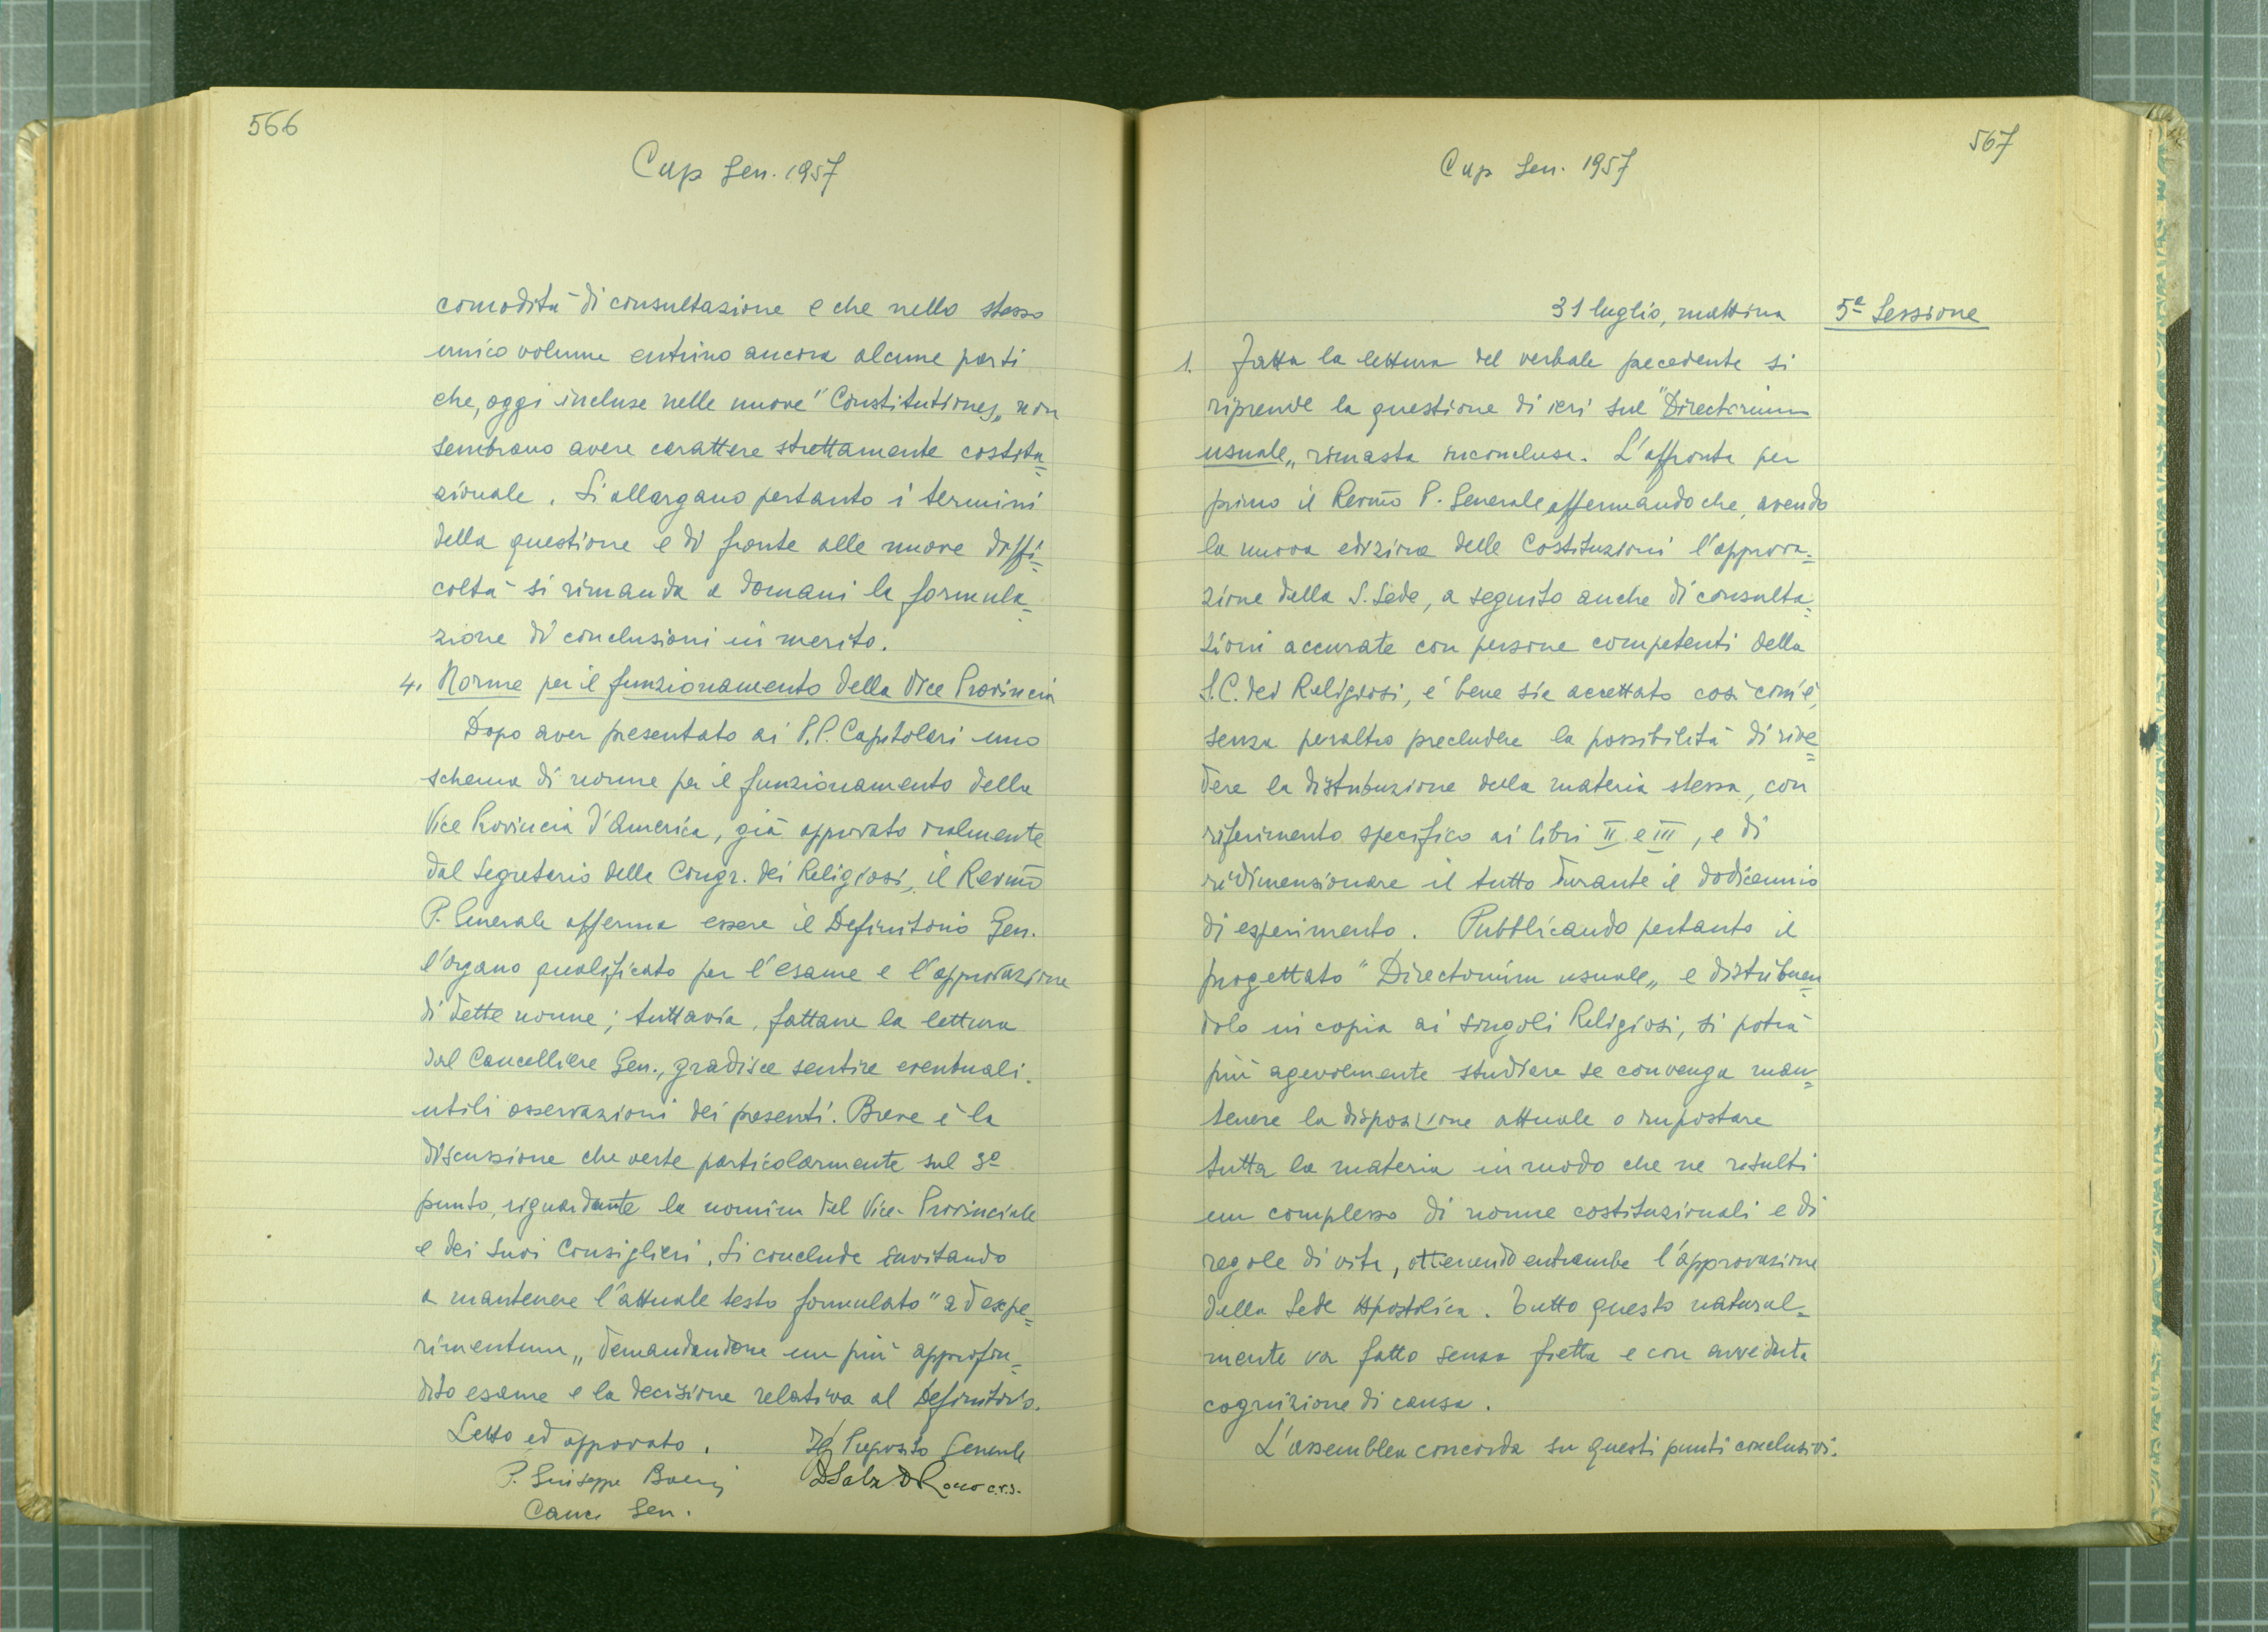 566
Cap Gen. 1957
comodità di consultazione e che nello stesso
unico volume entrino ancora alcune parti
che, oggi incluse nelle nuove "Constitutiones„ non
sembrano avere carattere strettamente costitu=
zionale. Si allargano pertanto i termini
della questione e di fronte alle nuove diffi=
coltà si rimanda a domani la formula=
zione di conclusioni in merito.
4. Norme per il funzionamento della Vice Provincia
Dopo aver presentato ai P.P. Capitolari uno
schema di norme per il funzionamento della
Vice Provincia d'America, già approvato oralmente
dal Segretario della Congr. dei Religiosi, il Rev.mo
P. Generale afferma essere il Definitorio Gen.
l'organo qualificato per l'esame e l'approvazione
di dette norme; tuttavia, fattane la lettura
dal Cancelliere Gen., gradisce sentire eventuali
utili osservazioni dei presenti. Breve è la
discussione che verte particolarmente sul 3º
punto, riguardante la nomina del Vice-Provinciale
e dei suoi Consiglieri. Si conclude invitando
a mantenere l'attuale testo formulato "ad expe=
rimentum„ demandandone un più approfon=
dito esame e la decisione relativa al Definitorio.
Letto ed approvato.
Il Preposito Generale
P. Giuseppe
Canc. Gen.
c.r.s.
567
Cap Gen. 1957
31 luglio, mattina
5ª Sessione
1. Fatta la lettura del verbale precedente si
riprende la questione di ieri sul "Directorium
usuale„ rimasta inconclusa. L'affronta per
primo il Rev.mo P. Generale affermando che, avendo
la nuova edizione delle Costituzioni l'approva=
zione dalla S. Sede, a seguito anche di consulta=
zioni accurate con persone competenti della
S.C. dei Religiosi, è bene sia accettato così com'è,
senza peraltro precludere la possibilità di rive=
dere la distribuzione della materia stessa, con
riferimento specifico ai libri II e III, e di
ridimensionare il tutto durante il dodicennio
di esperimento. Pubblicando pertanto il
progettato "Directorium usuale„ e distribuen=
dolo in copia ai singoli Religiosi, si potrà
più agevolmente studiare se convenga man=
tenere la disposizione attuale o impostare
tutta la materia in modo che ne risulti
un complesso di norme costituzionali e di
regole di vita, ottenendo entrambe l'approvazione
dalla Sede Apostolica. Tutto questo natural=
mente va fatto senza fretta e con avveduta
cognizione di causa.
L'assemblea concorda su questi punti conclusivi.